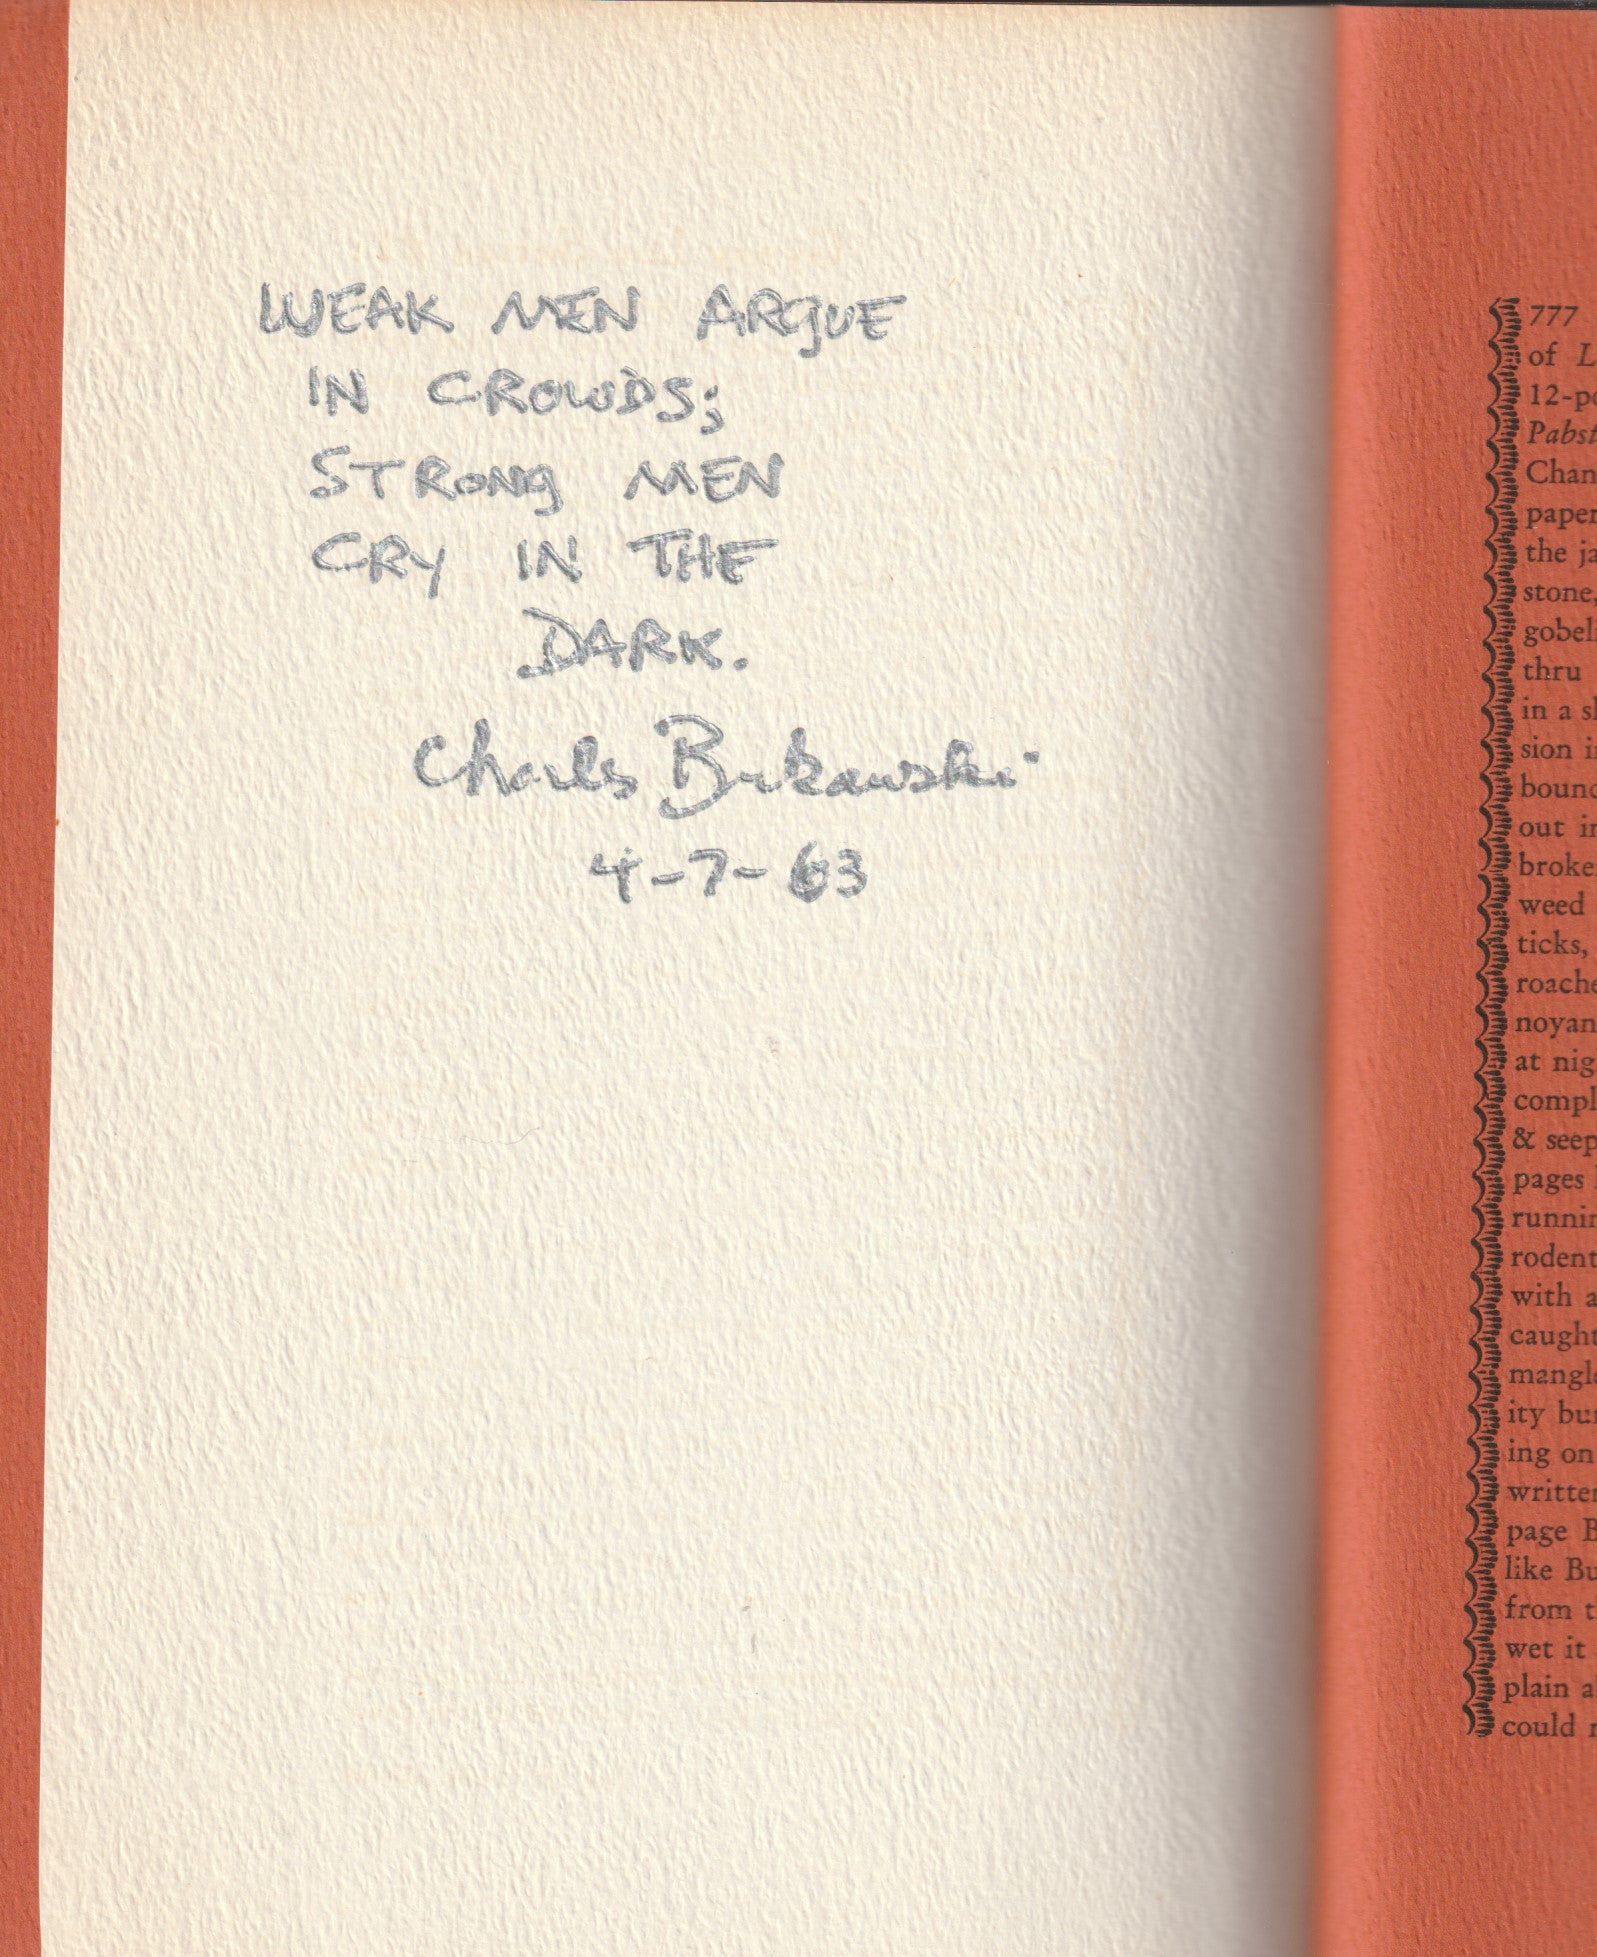 WEAK MEN ARGUE
IN CROWDS;
STRONG MEN
CRY IN THE
DARK.
Charles Bukowski
4-7-63
777
of L
12-po
Pabst
Chan
paper
the ja
stone,
gobeli
thru
in a sl
sion i
bounc
out in
broke
weed
ticks,
roache
noyan
at nig
compl
& seep
pages
runnin
rodent
with a
caught
mangle
ity bu
ing on
written
page B
like Bu
from t
wet it
plain a
could